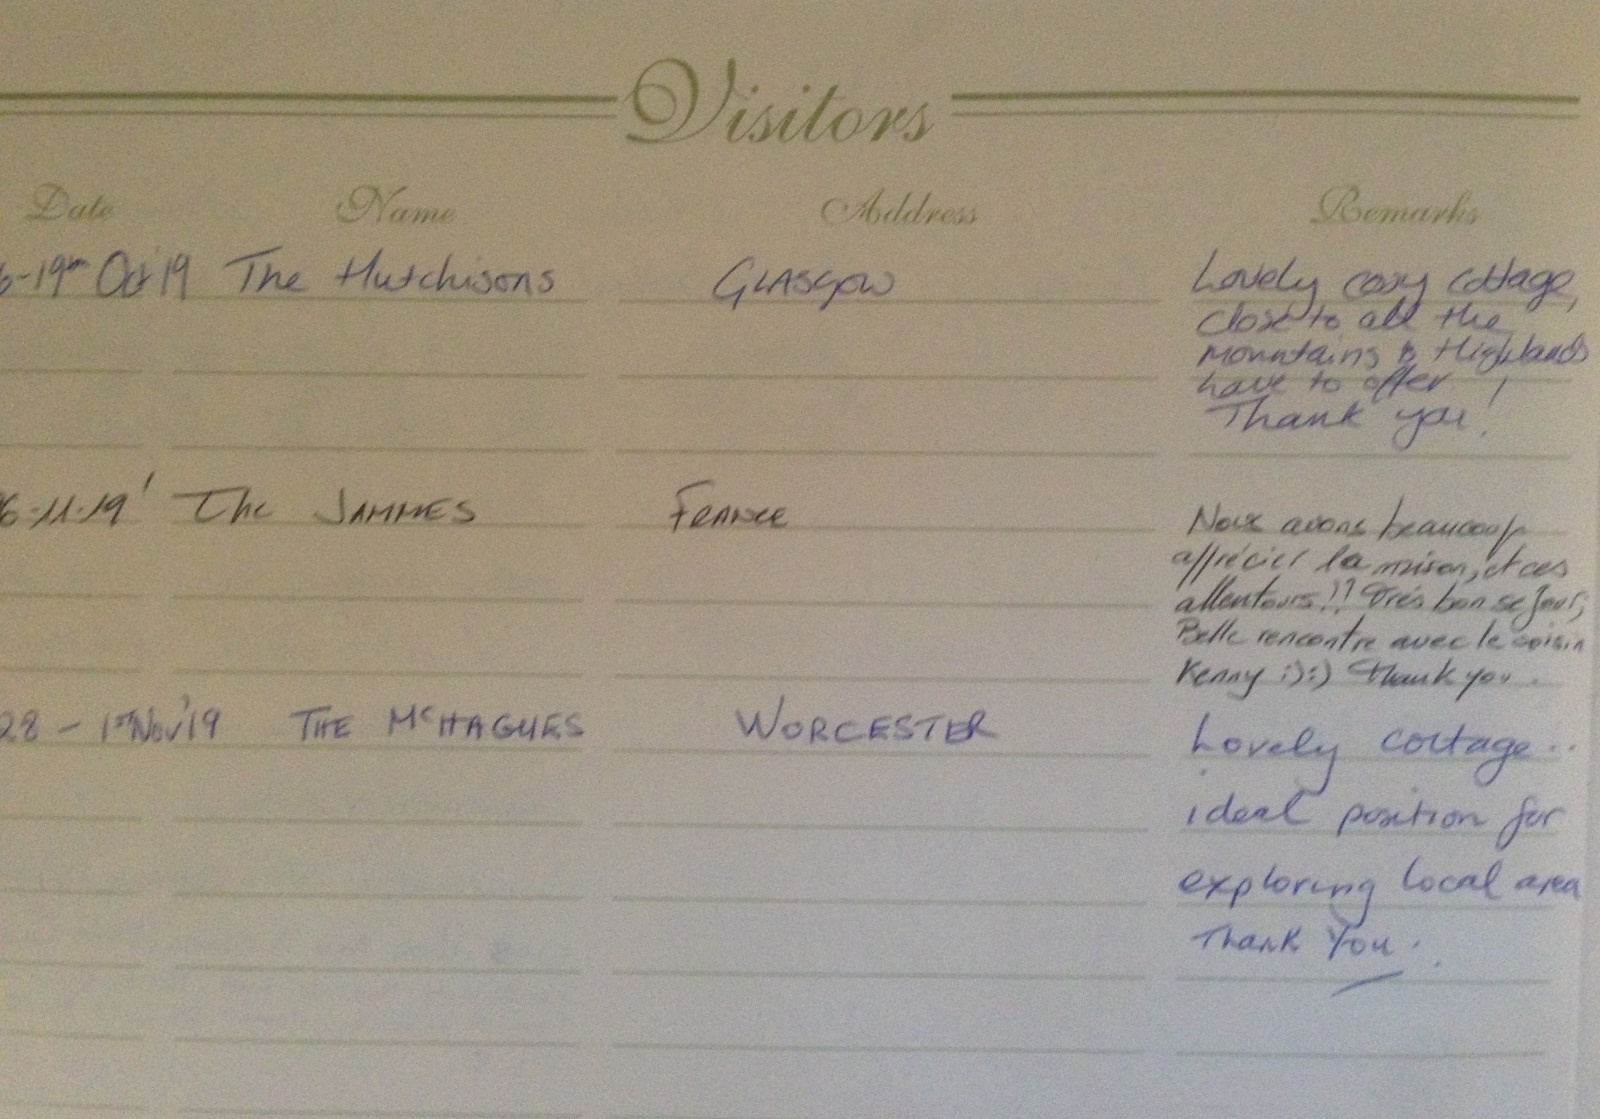 Visitors
Date Name Address Remarks
6-19th Oct'19 The Hutchisons GLASGOW Lovely cosy cottage,
close to all the
mountains & Highlands
have to offer
Thank you!
6-11-19' The JAMMES FRANCE Nous avons beaucoup
apprécier la maison, et ces
allentours!! Très bon séjour;
Belle rencontre avec le voisin
Kenny :):) Thank you.
28 - 1st Nov'19 THE McHAGUES WORCESTER Lovely cottage..
ideal position for
exploring local area
Thank You.